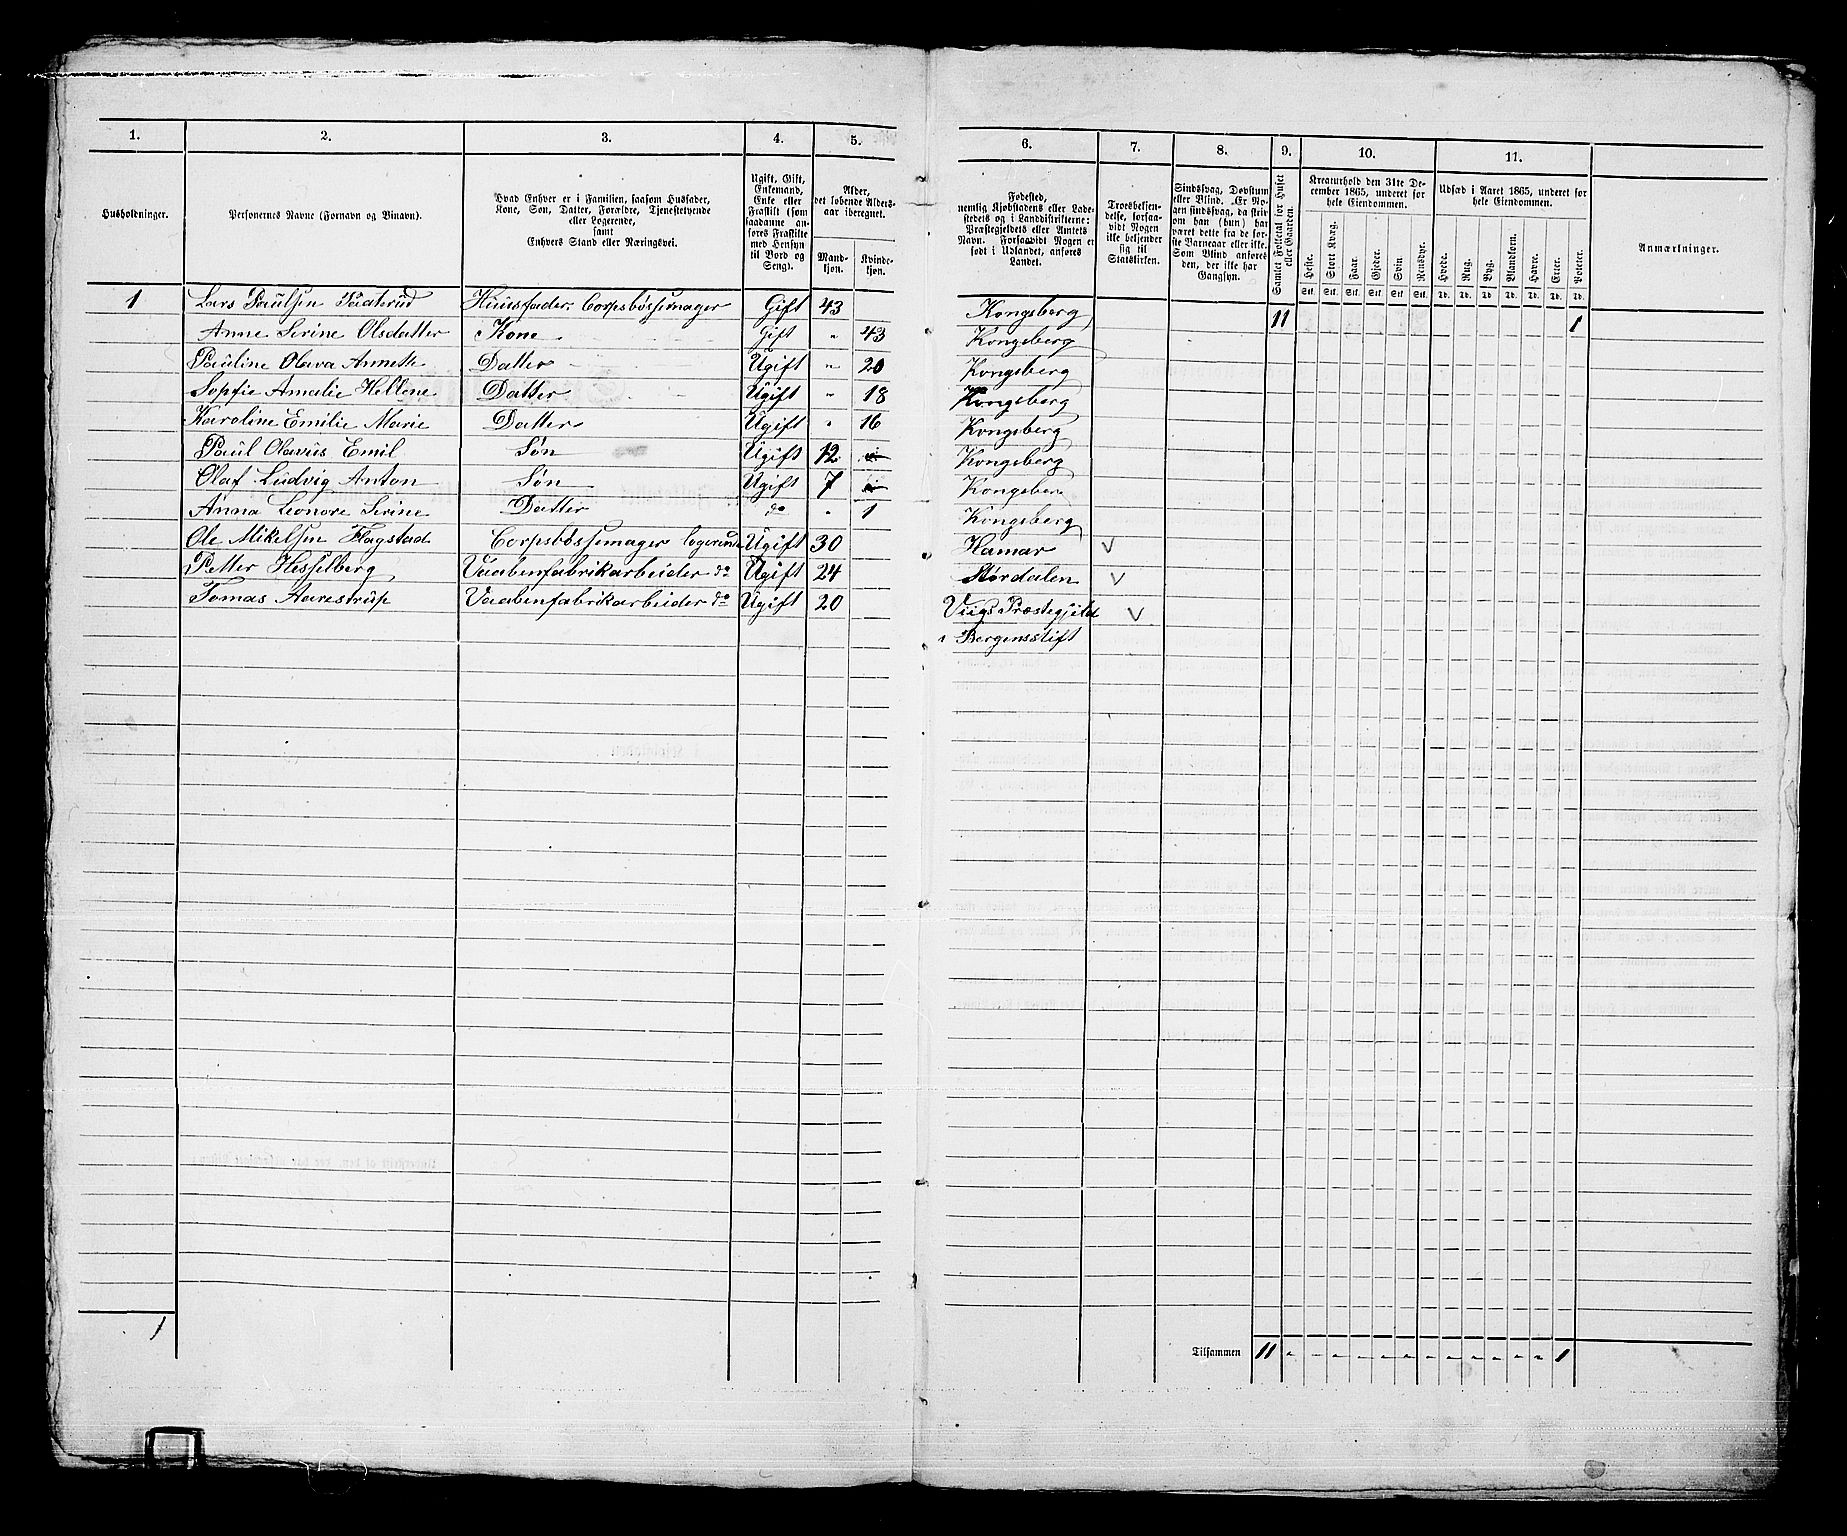 1. 2. 3. 4. 5. 6. 7. 8. 9. 10. 11.
Husholdninger.
Personernes Navne (Fornavn og Tilnavn).
Hvad Enhver er i Familien, saasom Husfader,
Kone, Søn, Datter, Forældre, Tjenestetyende
eller Logerende,
samt
Enhvers Stand eller Næringsvei.
Ugift, Gift,
Enkemand,
Enke eller
Fraskilt (som
saadanne an-
føres Fraskilte
med Hensyn
til Bord og
Seng).
Alder,
det løbende Alders-
aar iberegnet.
Mand-
kjøn.
Kvinde-
kjøn.
Fødested,
nemlig Kjøbstadens eller Lade-
stedets og i Landdistrikterne:
Præstegjeldets eller Amtets
Navn. Forsaavidt Nogen er
født i Udlandet, anføres
Landet.
Troesbekjen-
delse, forsaa-
vidt Nogen
ikke bekjender
sig til
Statskirken.
Sindssvag, Døvstum
eller Blind. Er No-
gen sindssvag, da skriv
om han (hun) har
været dette fra de før-
ste Barneaar eller ikke.
Som Blind anføres
den, der ikke har
Gangsyn.
Samlet Folketal for Huset
eller Gaarden.
Kreaturhold den 31te De-
cember 1865, underet for
hele Eiendommen.
Heste. Stort Kvæg. Faar. Gjeder. Svin Rensdyr.
Stk. Stk. Stk. Stk. Stk. Stk.
Udsæd i Aaret 1865, underet for
hele Eiendommen.
Hvede. Rug. Byg. Blandkorn. Havre. Erter. Poteter.
Td. Td. Td. Td. Td. Td. Td.
Anmærkninger.
1 Lars Paulsen Huusfader. Corpsbøssemager Gift 43 Kongsberg 11 1
Anne Serine Olsdatter Kone Gift " 43 Kongsberg
Pauline Olava Annette Datter Ugift " 20 Kongsberg
Sopfie Amalie Hellene Datter Ugift " 18 Kongsberg
Karoline Emilie Marie Datter Ugift " 16 Kongsberg
Paul Olavus Emil Søn Ugift 12 Kongsberg
Olaf Ludvig Anton Søn Ugift 7 Kongsberg
Anna Leonore Serine Datter do " 1 Kongsberg
Ole Mikelsen Flagstad Corpsbøssemager Logerende Ugift 30 Hamar V
Petter Hesselberg Vaabenfabrikarbeider do Ugift 24 Størdalen V
Tomas Aarestrup Vaabenfabrikarbeider do Ugift 20 Viigs Præstegjeld V
i Bergensstift
1
Tilsammen 11 " " " " " " " " " " " " 1